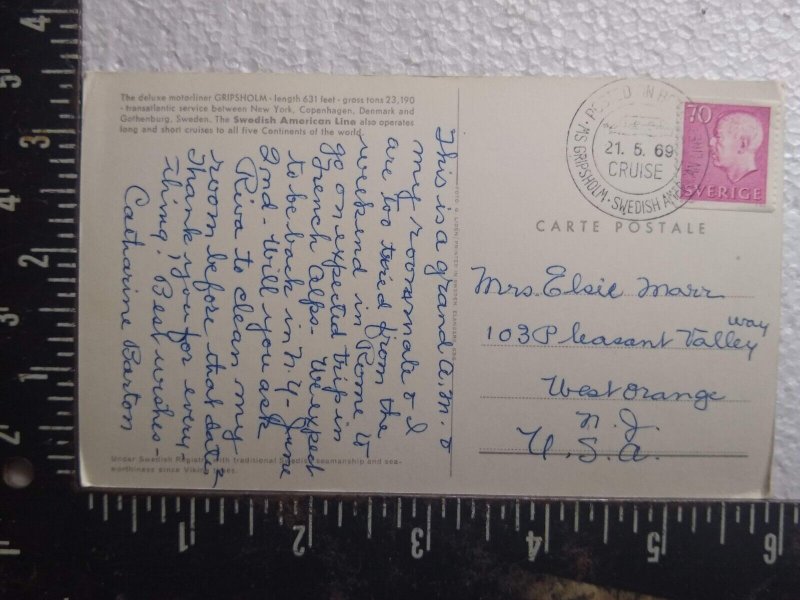 The deluxe motorliner GRIPSHOLM - length 631 feet - gross tons 23,190
- transatlantic service between New York, Copenhagen, Denmark and
Gothenburg, Sweden. The Swedish American Line also operates
long and short cruises to all five Continents of the world.
This is a grand
my roommate & I
are too tired from the
weekend in Rome to
go on expected trip in
French Alps. We expect
to be back in N.Y. June
2nd. Will you ask
Riva to clean my
room before that date?
Thank you for every
thing. Best wishes -
Catharine Barton
Under Swedish Registry with traditional Swedish seamanship and sea-
worthiness since Viking times.
PRINTED IN SWEDEN
POSTED IN
21. 5. 69
CRUISE
MS GRIPSHOLM · SWEDISH AMERICAN LINE
70
SVERIGE
CARTE POSTALE
Mrs. Elsie Marr
103 Pleasant Valley
way
West Orange
N.J.
U.S.A.
5
4
3
2
1
4
3
2
1
1
2
3
4
5
6